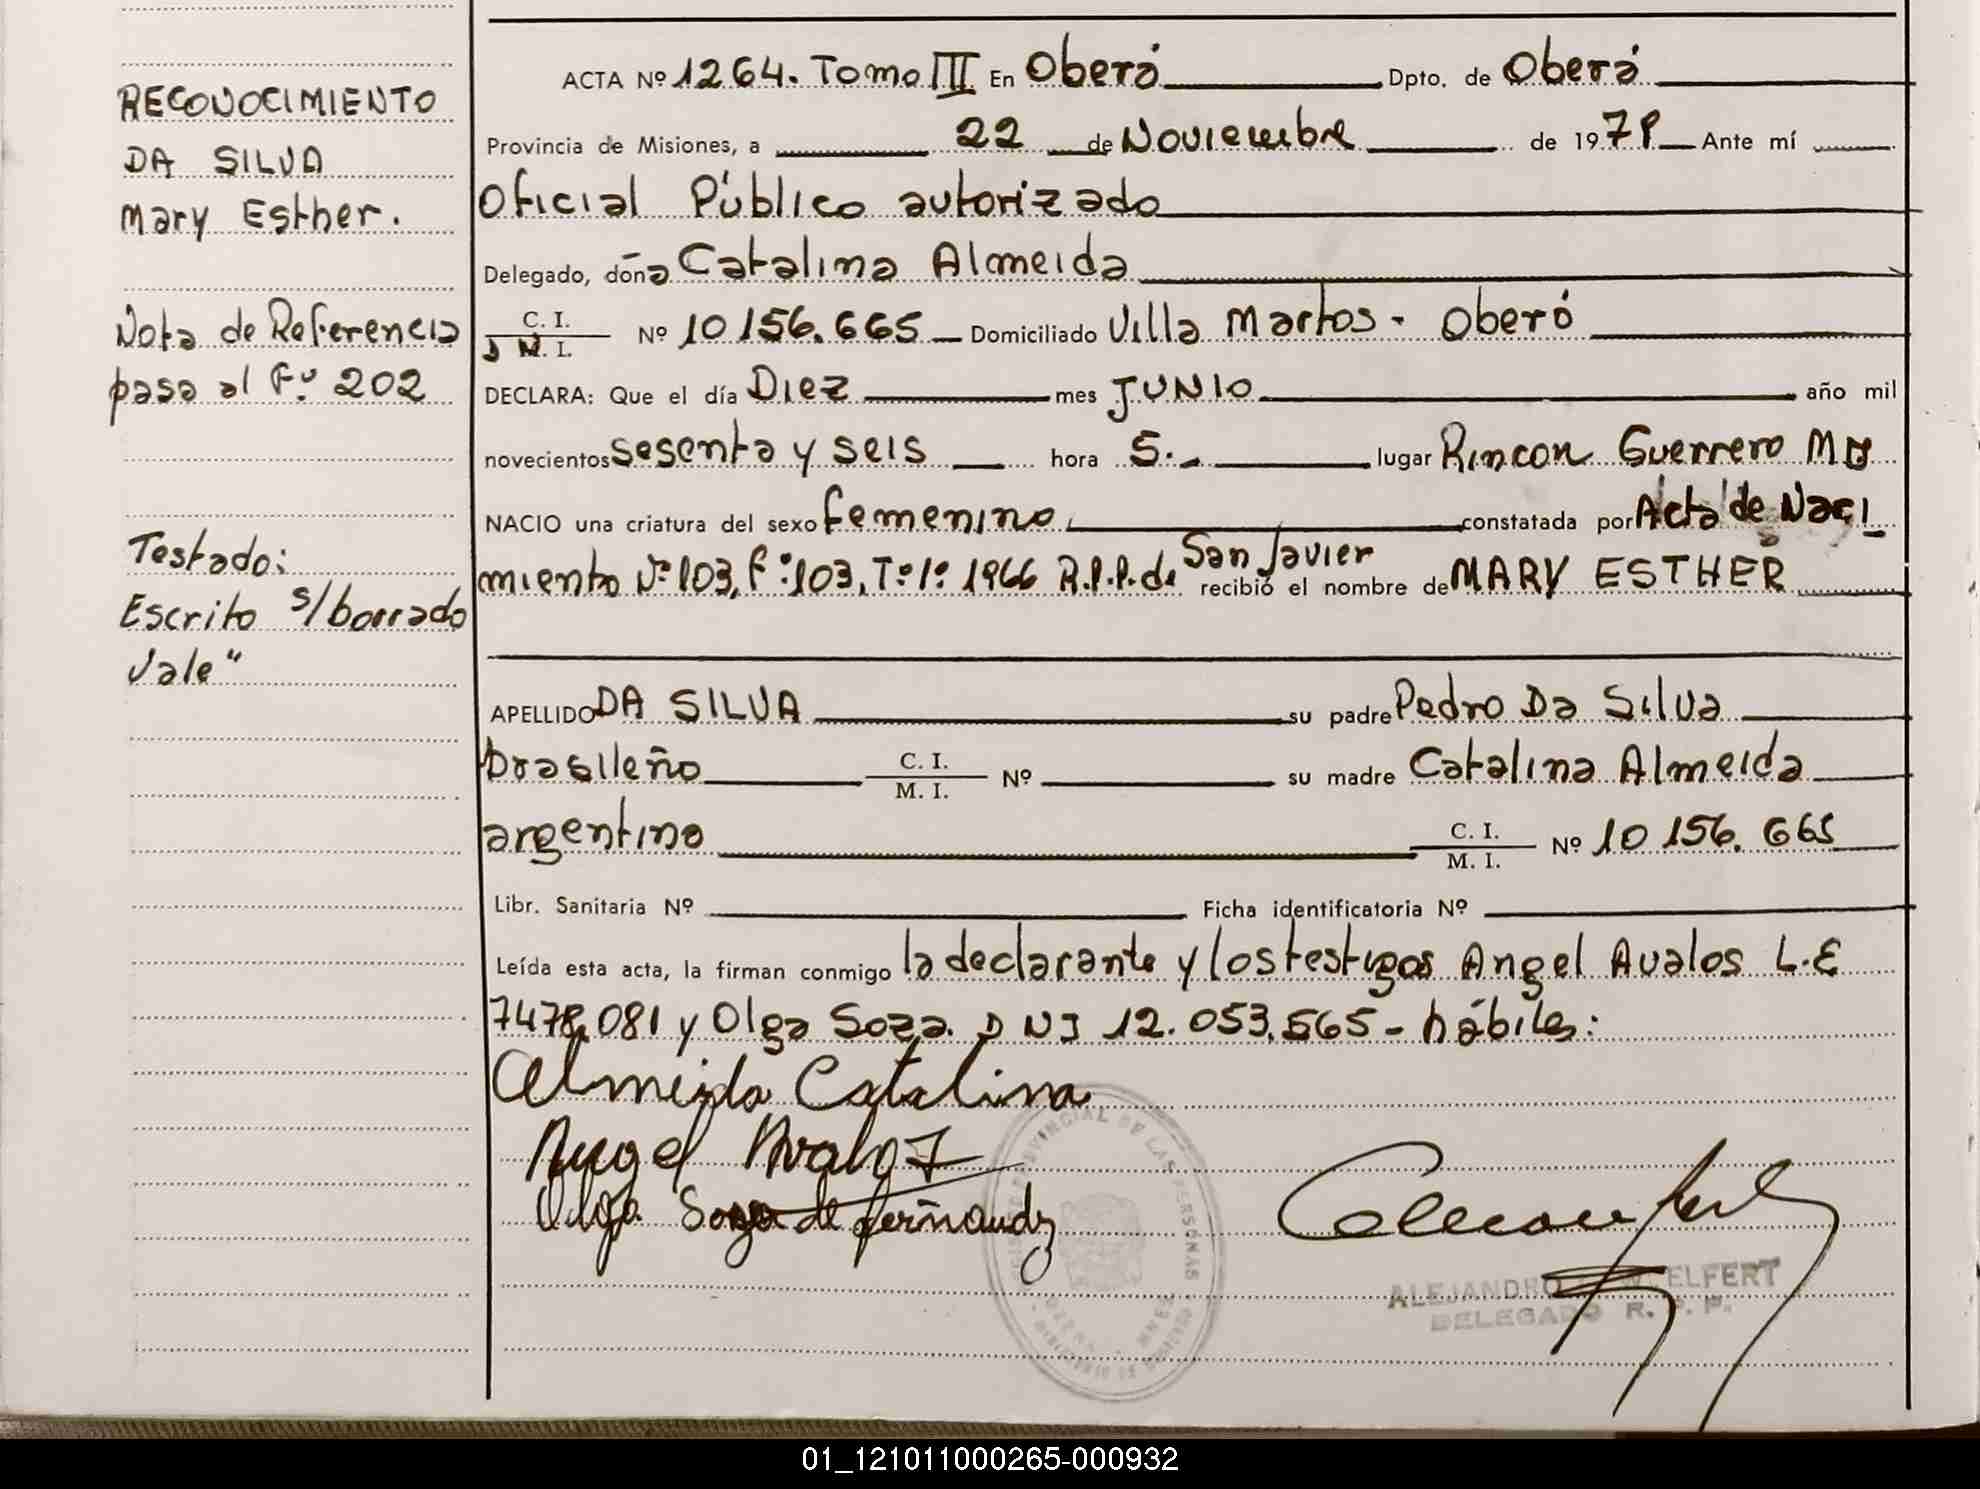 RECONOCIMIENTO
DA SILVA
Mary Esther.
Nota de Referencia
pasa al Fº 202
Testado:
Escrito s/borrado
Vale"
ACTA Nº 1264. Tomo III En Oberá Dpto. de Oberá
Provincia de Misiones, a 22 de Noviembre de 1978 Ante mí
Oficial Público autorizado
Delegado, doña Catalina Almeida
C. I.
D N. I. Nº 10 156.665 Domiciliado Villa Martos - Oberá
DECLARA: Que el día Diez mes JUNIO año mil
novecientos sesenta y seis hora 5. lugar Rincon Guerrero
NACIO una criatura del sexo femenino constatada por Acta de Naci
miento Nº 103, Fº 103, Tº 1º 1966 R.P.P. de San Javier recibió el nombre de MARY ESTHER
APELLIDO DA SILVA su padre Pedro Da Silva
brasileño C. I. M. I. Nº su madre Catalina Almeida
argentino C. I. M. I. Nº 10 156. 665
Libr. Sanitaria Nº Ficha identificatoria Nº
Leída esta acta, la firman conmigo la declarante y los testigos Angel Avalos L.E
7478.081 y Olga Soza. D N I 12.053.565 - hábiles:
Almeida Catalina
Angel Avalos
Olga Soza de fernandz
ALEJANDRO WOELFERT
DELEGADO R. P. P.
01_121011000265-000932